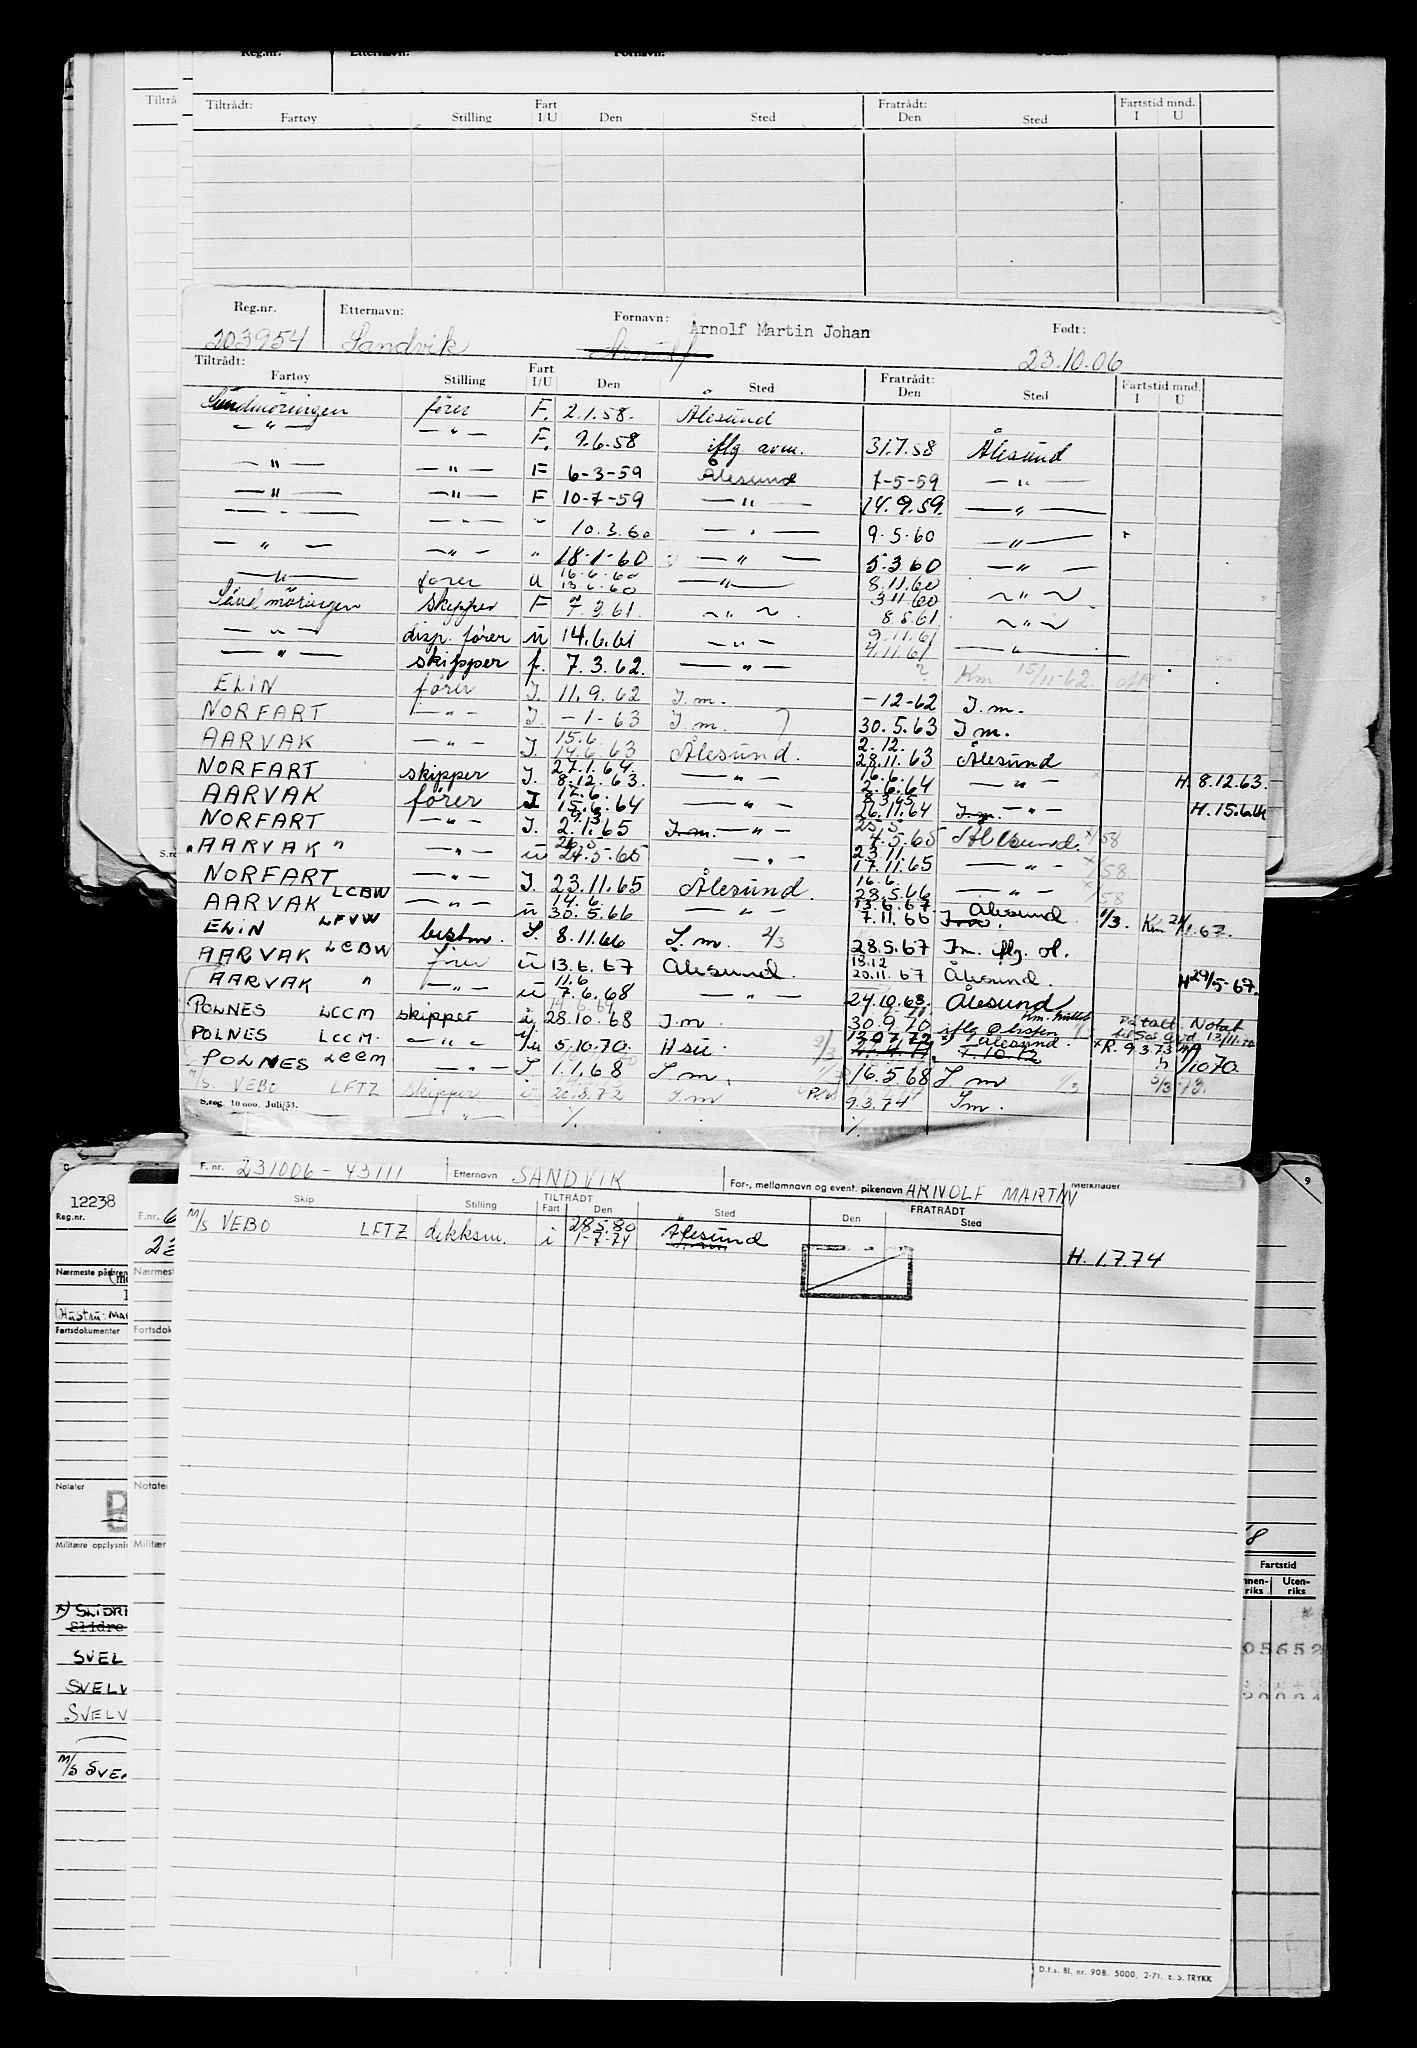 Reg.nr. Etternavn: Fornavn:
Tiltrådt: Fratrådt: Fartstid mnd.
Fartøy Stilling Fart I/U Den Sted Den Sted I U
Reg.nr. Etternavn: Fornavn: Født:
203954 Sandvik Arnolf Arnolf Martin Johan 23.10.06
Tiltrådt: Fratrådt: Fartstid mnd.
Fartøy Stilling Fart I/U Den Sted Den Sted I U
Sundmøringen fører F. 2.1.58. Ålesund
— " — — " — F. 9.6.58 iflg avm. 31.7.58 Ålesund
— " — — " — F 6-3-59 Ålesund 7-5-59 — " —
— " — — " — F 10-7-59 — " — 14.9.59. — " —
— " — — " — " 10.3.60 — " — 9.5.60 — " —
— " — — " — " 18-1-60 — " — 5.3.60 — " —
— " — fører u 16.6.60 13.6.60 — " — 8.11.60 3.11.60 — " —
Sundmøringen skipper F 7.3.61. — " — 8.5.61 — " —
— " — disp. fører u 14.6.61 — " — 9.11.61 4.11.61 — " —
— " — skipper f. 7.3.62. — " — ? Km. 15/11-62.
ELIN fører I. 11.9.62 I.m. -12-62 I.m.
NORFART — " — I -1-63 I.m. 30.5.63 I m.
AARVAK — " — I. 15.6. 14.6.63 Ålesund. 2.12. 28.11.63 Ålesund
NORFART skipper I. 27.1.64. 8.12.63. — " — 16.6. 2.6.64 — " — H. 8.12.63.
AARVAK fører I 17.6. 15.6.64 — " — 8.3.65 26.11.64 I.m. — " — H. 15.6.64
NORFART — " — I. 9.3. 2.1.65 I.m. — " — 25.5 4.5.65 Ålesund. x/58
AARVAK " — " — u 26.5 24.5.65 — " — 23.11. 17.11.65 — " — x/58
NORFART — " — I. 23.11.65 Ålesund. 16.6. 28.5.66 — " — x/58
AARVAK LCBW — " — u 14.6. 30.5.66 — " — 13.6.67. 7.11.66 Ålesund I.m. 1/3. Km 24/1.67.
ELIN LFVW bestm. I. 8.11.66 I.m. 4/3 28.5.67 Im. iflg. ol.
AARVAK LCBW fører u 13.6.67 Ålesund. 13.12 20.11.67 Ålesund. H 29/5-67.
AARVAK " — " — u 11.6 7.6.68 — " — 24.10.68. Ålesund
POLNES LCCM skipper i 28.10.68 I.m. 30.9.70 iflg
POLNES LCCM. — " — i/u 5.10.70. Hsu. Ålesund. 7.10.72 R. 9.3.73
POLNES LCCM — " — I 1.1.68 I.m. 16.5.68 I m
M/S. VEBO LFTZ skipper i 20.3.72 I m 9.3.74 Im.
S.reg. 10 000. Juli/53. — " — ./. ./.
F. nr. 231006-43111 Etternavn SANDVIK For-, mellomnavn og event. pikenavn ARNOLF MARTIN Merknader
Skip Stilling TILTRÅDT Fart Den Sted FRATRÅDT Den Sted
M/S VEBO LFTZ dekksm. i 28.5.80 1-7-74 Ålesund
H. 1.7.74
D.f.s. Bl. nr. 908. 5000, 2-71. E. S. TRYKK
12238
Reg.nr. F.nr.
Fartsdokumenter
Notater Notater
Militære opplysnin Militær
Fartstid
SLIDRE
Slidre
SVEL
SVELV
SVELV
M/S SVE
05652